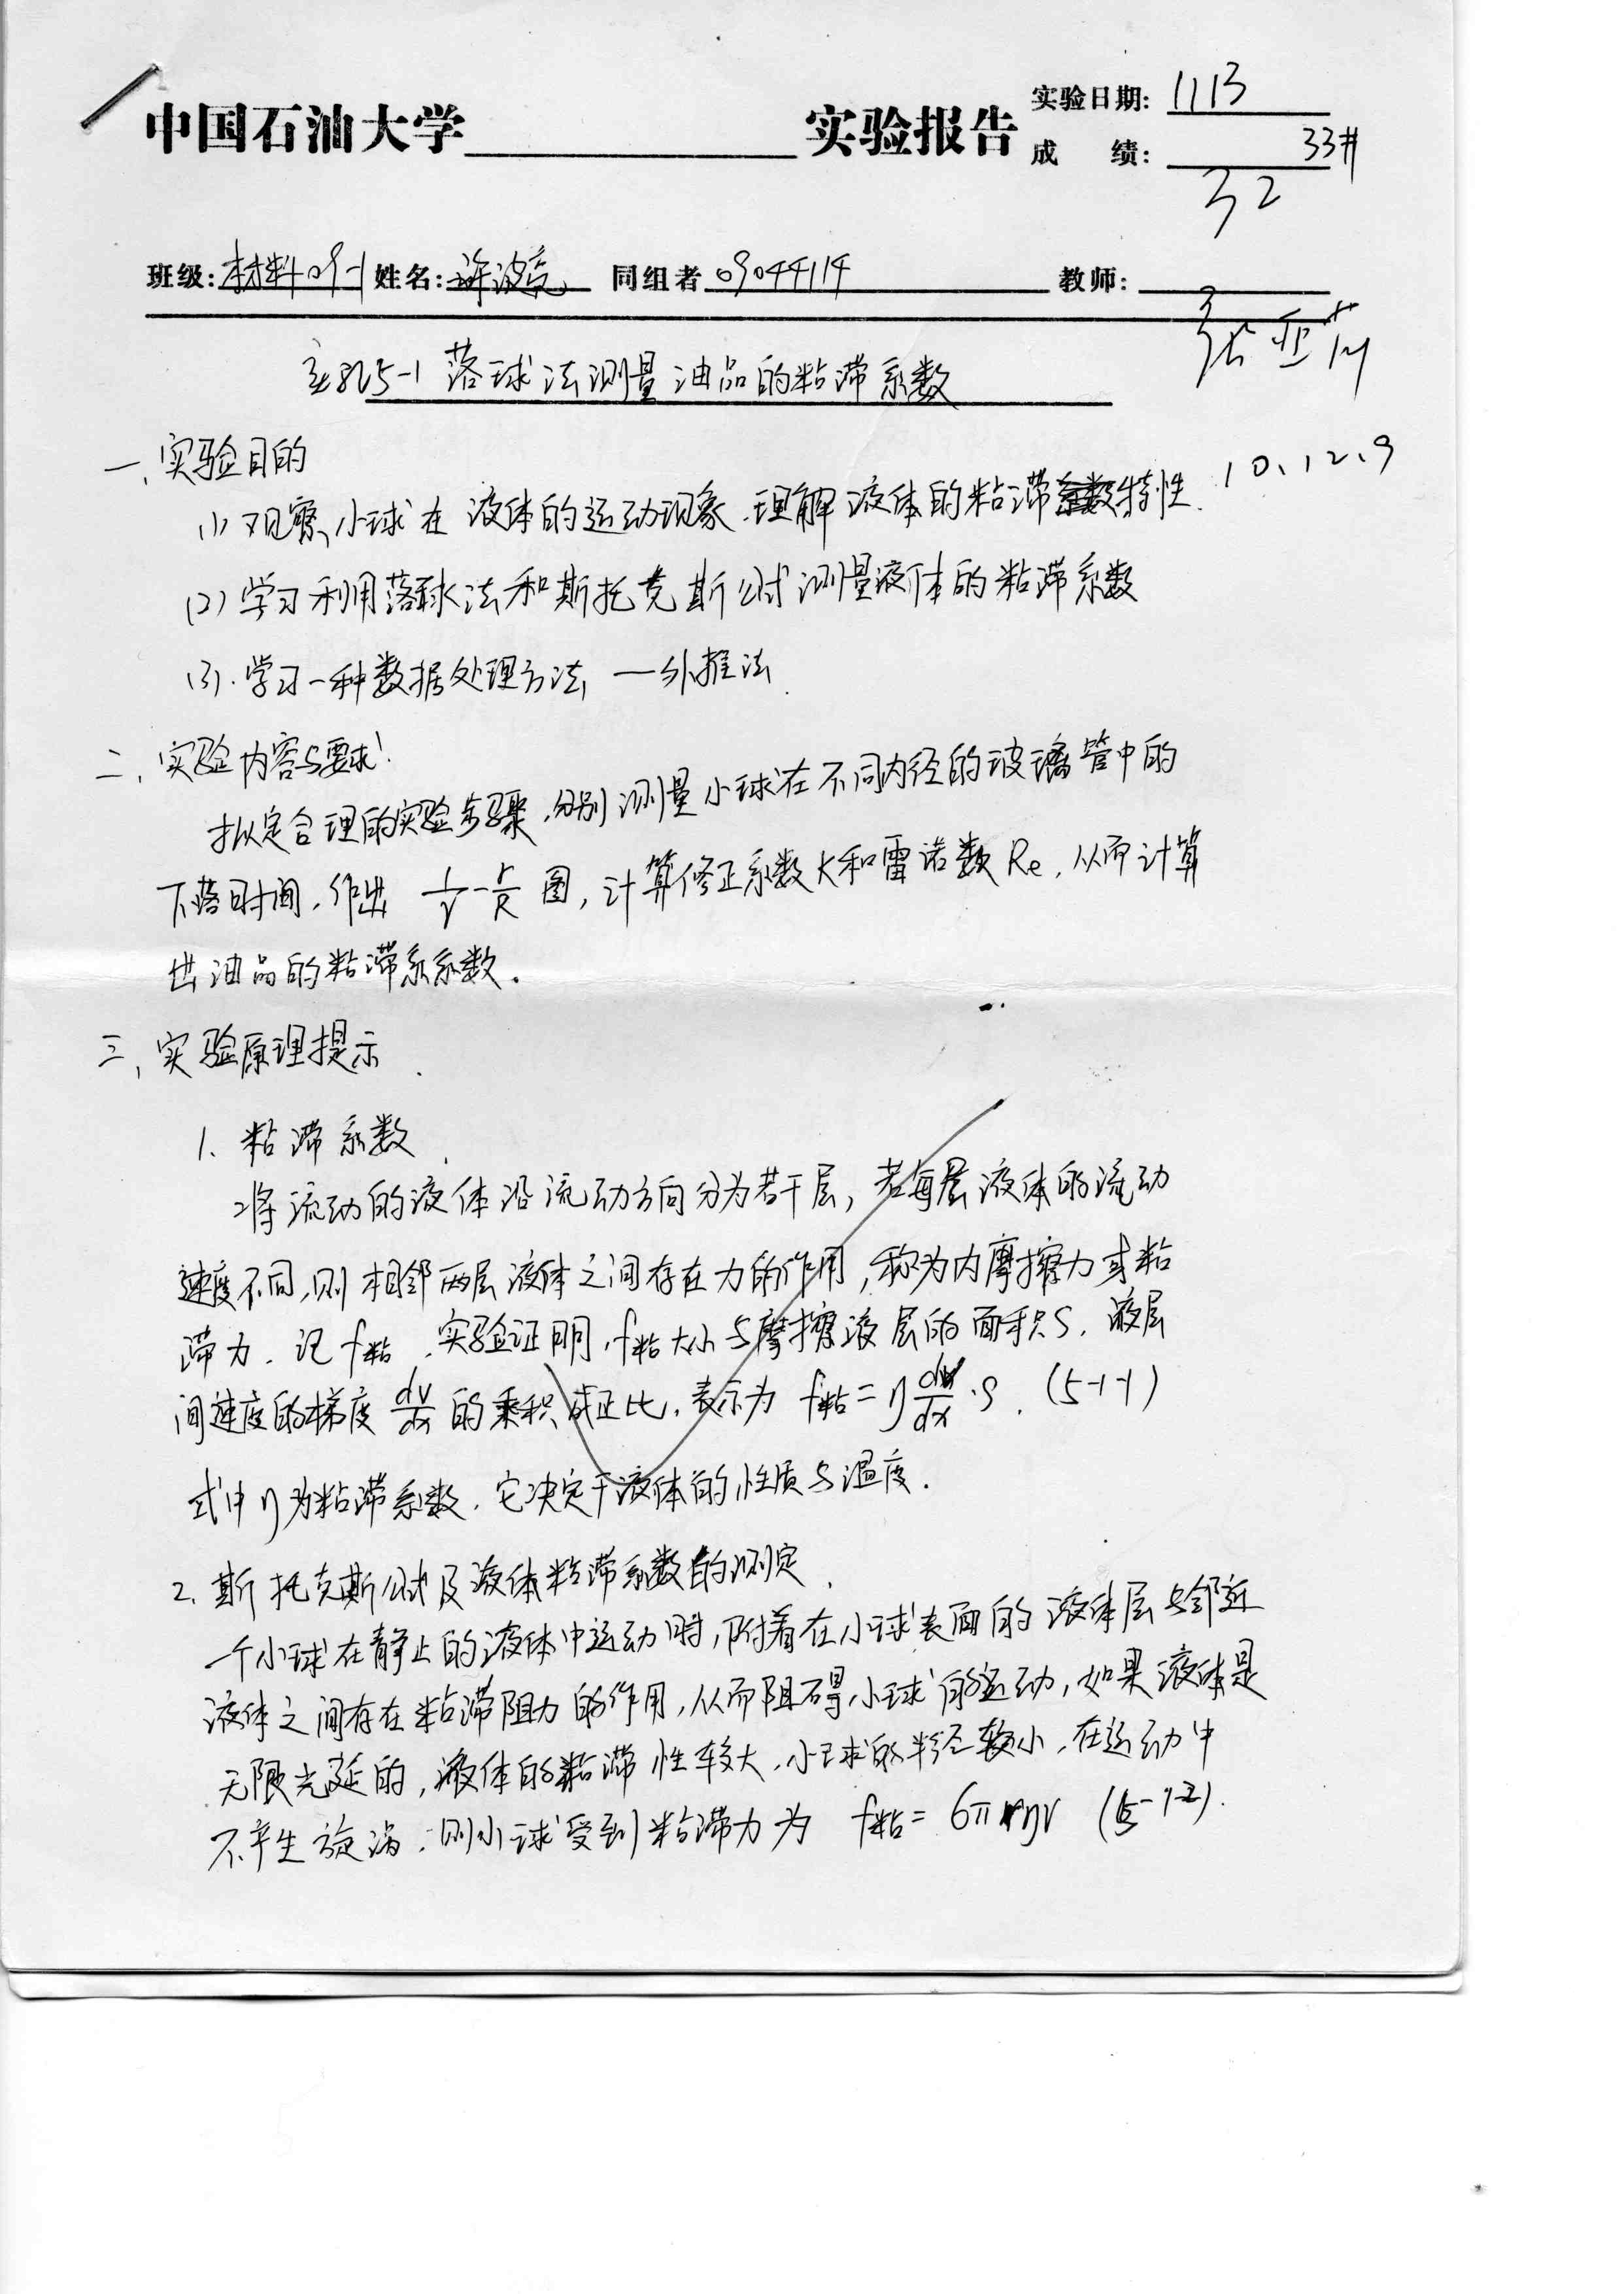 中国石油大学 实验报告
实验日期: 1113
成 绩: 33#
32
班级: 材料09-1 姓名: 同组者 09044114 教师:
张亚
5-1 落球法测量油品的粘滞系数
10、12、9
一、实验目的
(1) 观察小球在液体的运动现象.理解液体的粘滞特性.
(2) 学习利用落球法和斯托克斯公式测量液体的粘滞系数
(3). 学习一种数据处理方法 —外推法.
二、实验内容与要求
拟定合理的实验步骤,分别测量小球在不同内径的玻璃管中的
下落时间,作出 1/v - r/R 图,计算修正系数K和雷诺数Re,从而计算
出油品的粘滞系系数.
三、实验原理提示.
1、粘滞系数.
将流动的液体沿流动方向分为若干层,若每层液体的流动
速度不同,则相邻两层液体之间存在力的作用,称为内摩擦力或粘
滞力.记f粘.实验证明,f粘大小与摩擦液层的面积S.液层
间速度的梯度 dv/dx 的乘积成正比.表示为 f粘=η dv/dx ·S. (5-1-1)
式中η为粘滞系数.它决定于液体的性质与温度.
2. 斯托克斯公式及液体粘滞系数的测定.
一个小球在静止的液体中运动时,附着在小球表面的液体层与邻近
液体之间存在粘滞阻力的作用,从而阻碍小球的运动,如果液体是
无限光延的,液体的粘滞性较大,小球的半径较小,在运动中
不产生旋涡.则小球受到粘滞力为 f粘= 6πrηv (5-1-2).